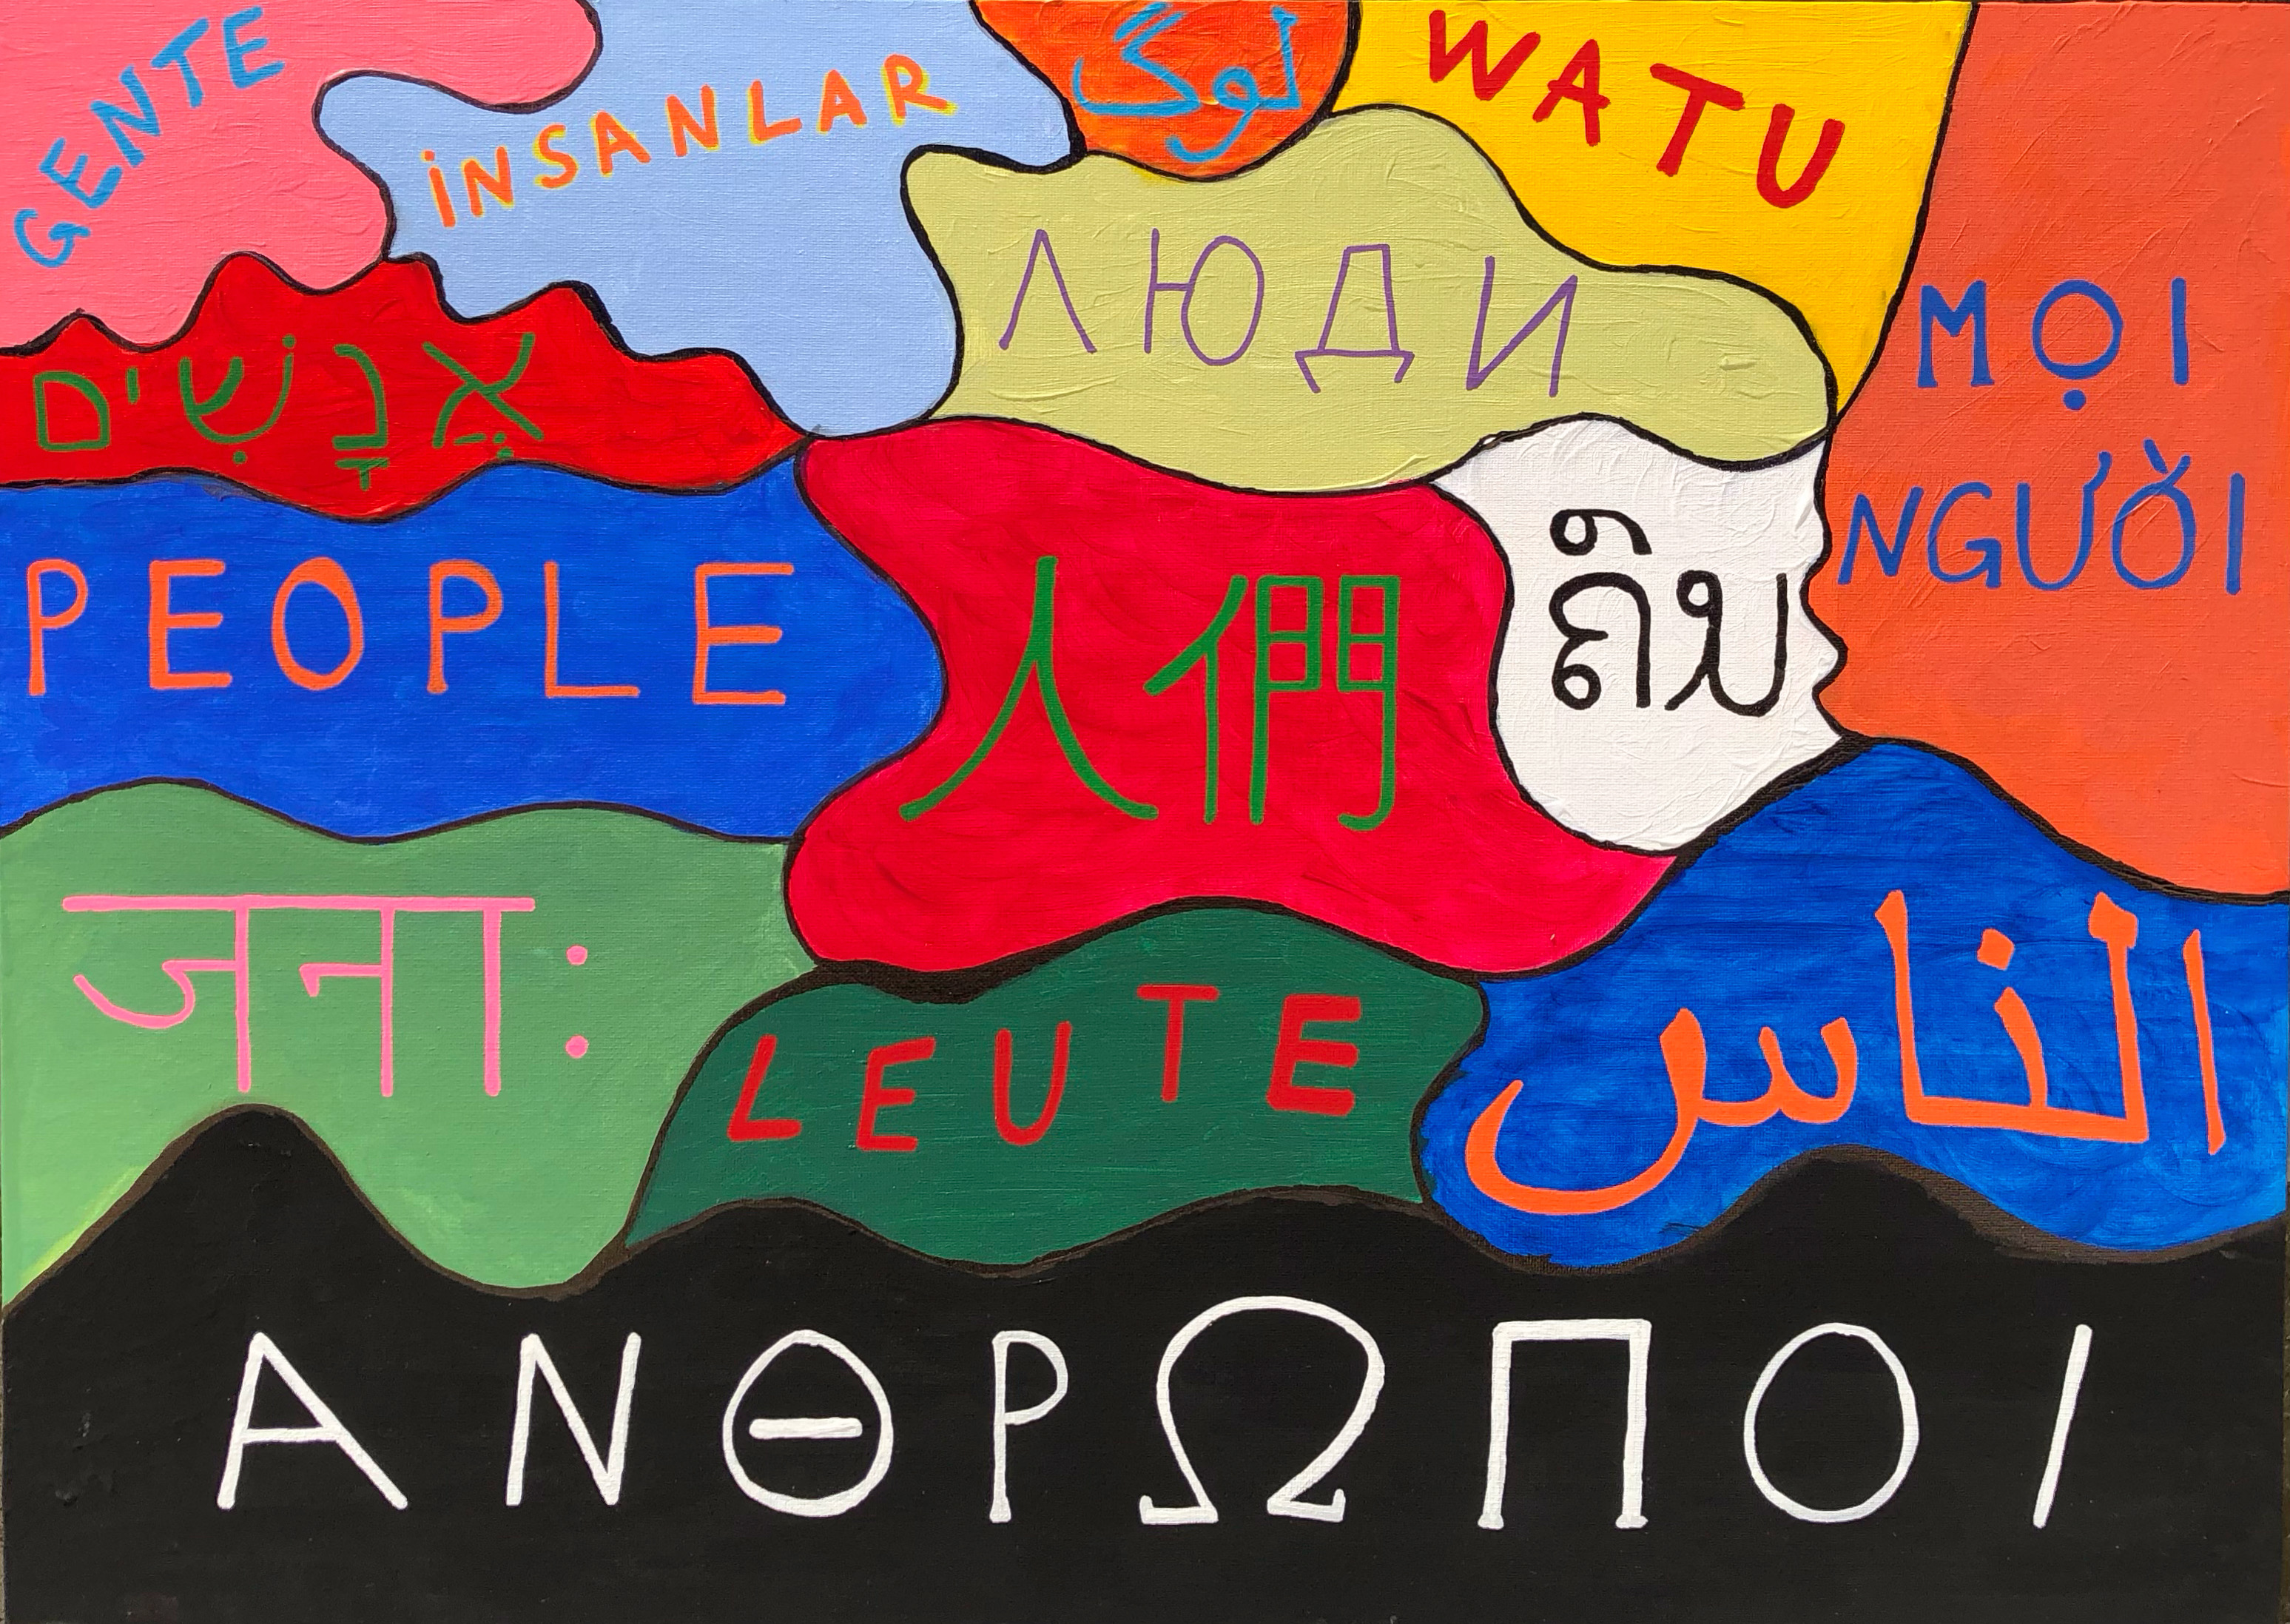 GENTE
İNSANLAR
لوگ
WATU
ЛЮДИ
MỌI
NGƯỜI
אֲנָשִׁים
PEOPLE
人們
ຄົນ
जनाः
LEUTE
الناس
ΑΝΘΡΩΠΟΙ